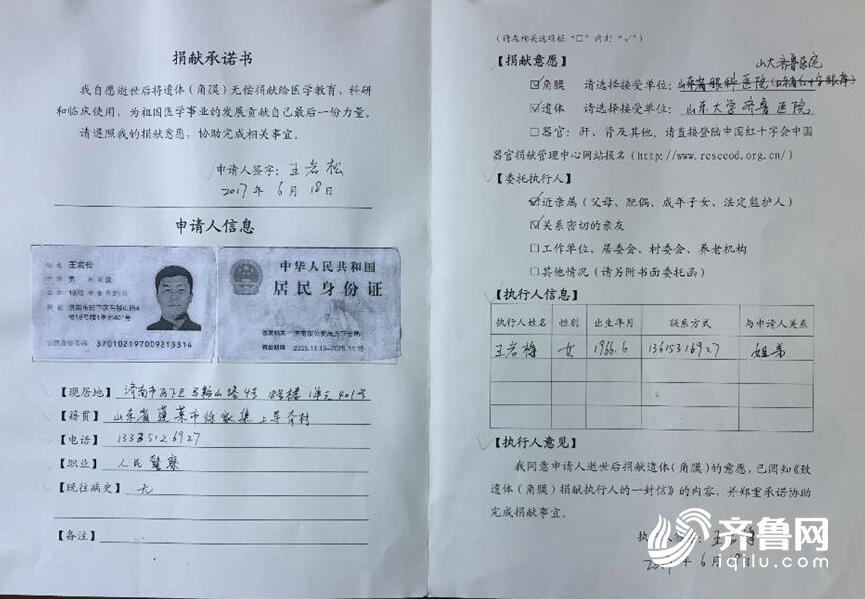 捐献承诺书
我自愿逝世后将遗体（角膜）无偿捐献给医学教育、科研
和临床使用，为祖国医学事业的发展贡献自己最后一份力量。
请遵照我的捐献意愿，协助完成相关事宜。
申请人签字：王岩松
2017年6月18日
申请人信息
王岩松
男
中华人民共和国
居民身份证
370102197009213314
【现居地】济南市历下区马鞍山路4号 楼1单元401号
【籍贯】山东省蓬莱市徐家集上 村
【电话】
【职业】人民警察
【既往病史】无
【备注】
（请在相关选项框“□”内打“√”）
【捐献意愿】
山大齐鲁医院
☑角膜 请选择接受单位：山东省眼科医院
☑遗体 请选择接受单位：山东大学齐鲁医院
□器官：肝、肾及其他，请直接登陆中国红十字会中国
器官捐献管理中心网站报名（http://www.rcsccod.org.cn/）
【委托执行人】
☑近亲属（父母、配偶、成年子女、法定监护人）
☑关系密切的亲友
□工作单位、居委会、村委会、养老机构
□其他情况（请另附书面委托函）
【执行人信息】
执行人姓名 性别 出生年月 联系方式 与申请人关系
王岩梅 女 1966.6 13615316927 姐弟
【执行人意见】
我同意申请人逝世后捐献遗体（角膜）的意愿，已阅知《致
遗体（角膜）捐献执行人的一封信》的内容，并郑重承诺协助
完成捐献事宜。
2017年6月18日
齐鲁网
iqilu.com